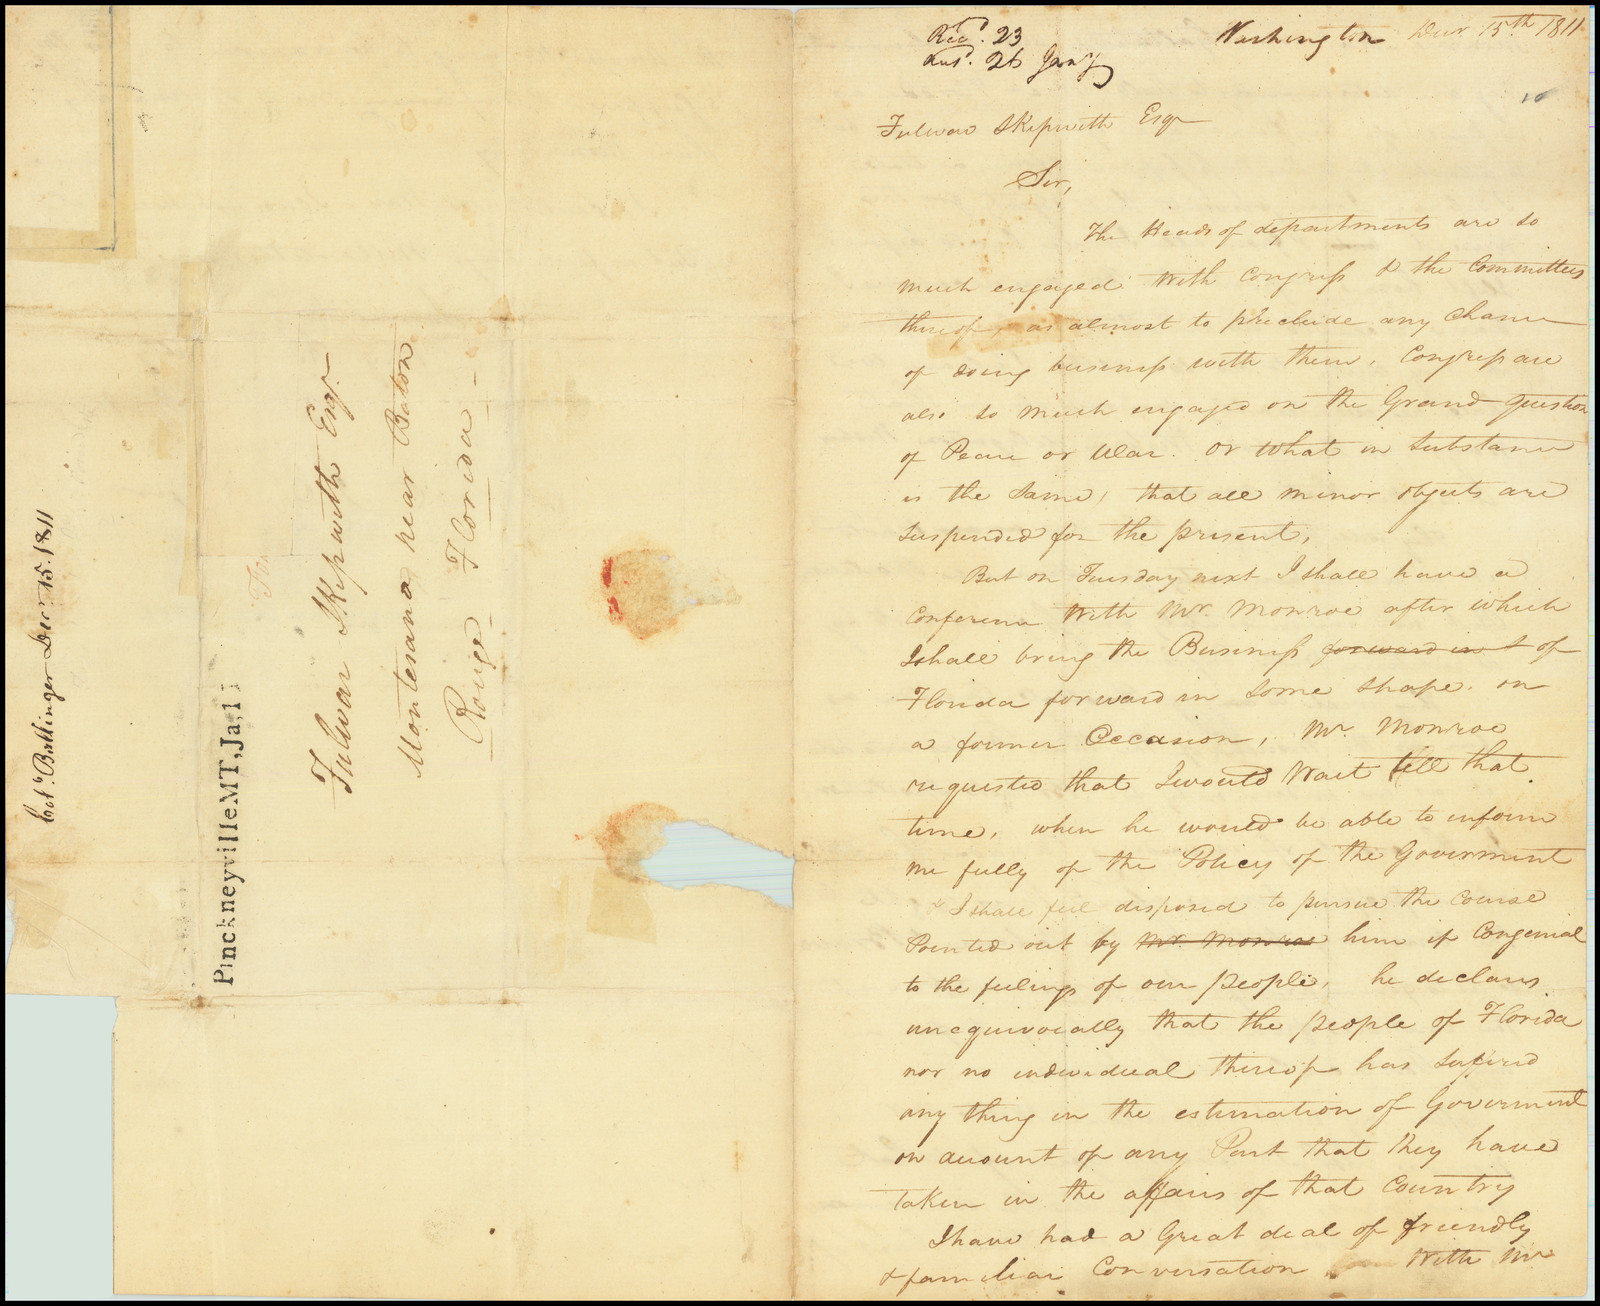 Col. Ballinger Decr. 15. 1811
Pinckneyville MT, Ja, 11
Fulwar Skipwith Esqr.
Montesano near Baton
Rouge Florida
Recd. 23
Ansd. 26 Jany
Washington Decr. 15th 1811
Fulwar Skipwith Esqr
Sir,
The Heads of departments are so
much engaged with Congress & the Committees
thereof, as almost to preclude any Chance
of doing business with them. Congress are
also so much engaged on the Grand question
of Peace or War. or what in Substance
is the Same, that all minor objects are
suspended for the present.
But on Tuesday next I shall have a
conference with Mr. Monroe after which
I shall bring the Business forward in of
Florida forward in some shape. on
a former Occasion, Mr. Monroe
requested that I would wait till that
time, when he would be able to inform
me fully of the Policy of the Goverment
& I shall feel disposed to pursue the course
Pointed out by Mr. Monroe him if Congenial
to the feelings of our people, he declares
unequivocally that the people of Florida
nor no individual thereof has sufered
any thing in the estimation of Goverment
on account of any Part that they have
taken in the affairs of that Country
I have had a Great deal of friendly
& familiar Conversation with Mr